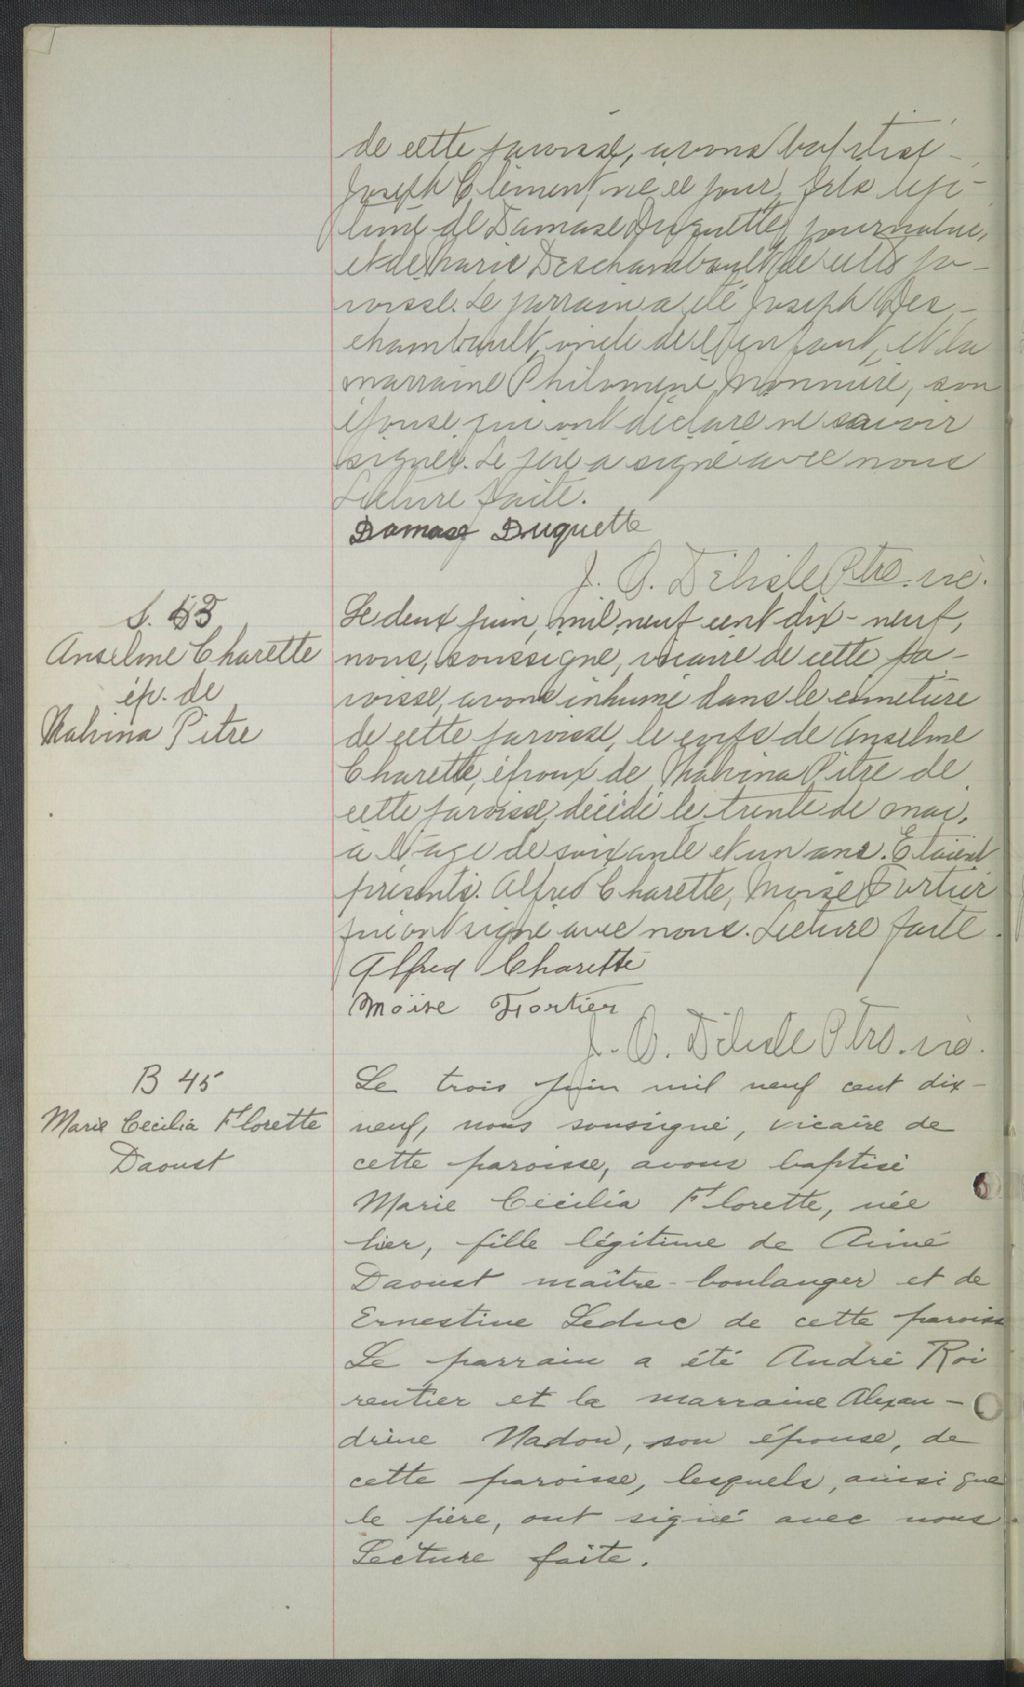 de cette paroisse, avons baptisé
Joseph Clément, né ce jour, fils légi-
time de Damase Duquette, journalier,
et de Marie Deschambault de cette pa-
roisse. Le parrain a été Joseph Des-
chambault, oncle de l'enfant, et la
marraine Philomène Monnière, son
épouse qui ont déclaré ne savoir
signer. Le père a signé avec nous
Lecture faite.
Damase Duquette
J. O. Délisle Ptre. vic.
S. 53
Anselme Charette
ép. de
Malvina Pitre
Le deux juin, mil neuf cent dix-neuf,
nous, soussigné, vicaire de cette pa-
roisse, avons inhumé dans le cimetière
de cette paroisse, le corps de Anselme
Charette, époux de Malvina Pitre de
cette paroisse, décédé le trente de mai,
à l'âge de soixante et un ans. Etaient
présents. Alfred Charette, Moïse Fortier
qui ont signé avec nous. Lecture faite.
Alfred Charette
Moïse Fortier
J. O. Délisle Ptre. vic.
B 45
Marie Cecilia Florette
Daoust
Le trois juin mil neuf cent dix-
neuf, nous soussigné, vicaire de
cette paroisse, avons baptisé
Marie Cécilia Florette, née
hier, fille légitime de Aimé
Daoust maître-boulanger et de
Ernestine Leduc de cette paroisse
Le parrain a été André Roi
rentier et la marraine Alexan-
drine Nadon, son épouse, de
cette paroisse, lesquels, ainsi que
le père, ont signé avec nous.
Lecture faite.